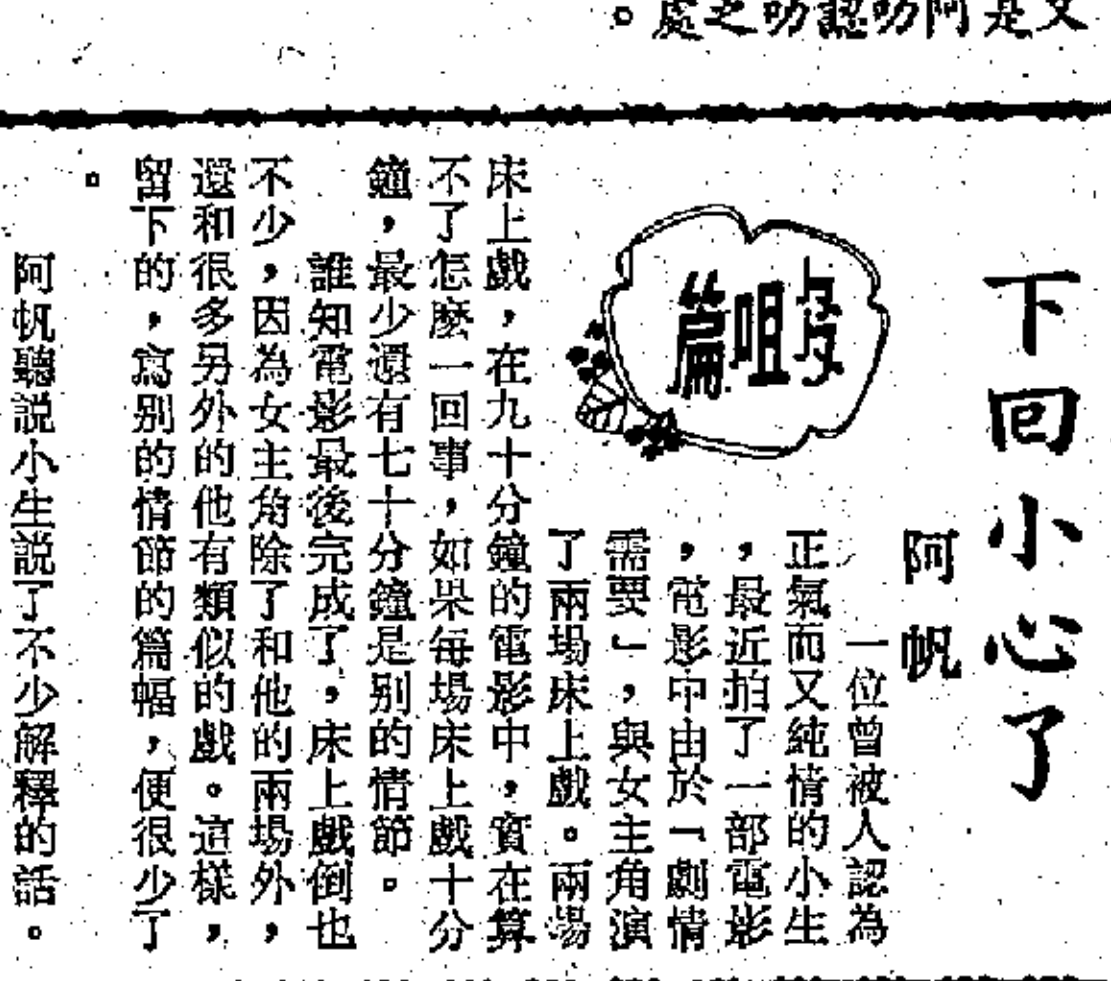 是阿叻認叻之處。
下回小心了
阿帆
咀篇
一位曾被人認為
正氣而又純情的小生
，最近拍了一部電影
，電影中由於「劇情
需要」，與女主角演
了兩場床上戲。兩場
床上戲，在九十分鐘的電影中，實在算
不了怎麼一回事，如果每場床上戲十分
鐘，最少還有七十分鐘是別的情節。
誰知電影最後完成了，床上戲倒也
不少，因為女主角除了和他的兩場外，
還和很多另外的他有類似的戲。這樣，
留下的，寫別的情節的篇幅，便很少了
。
阿帆聽説小生説了不少解釋的話。